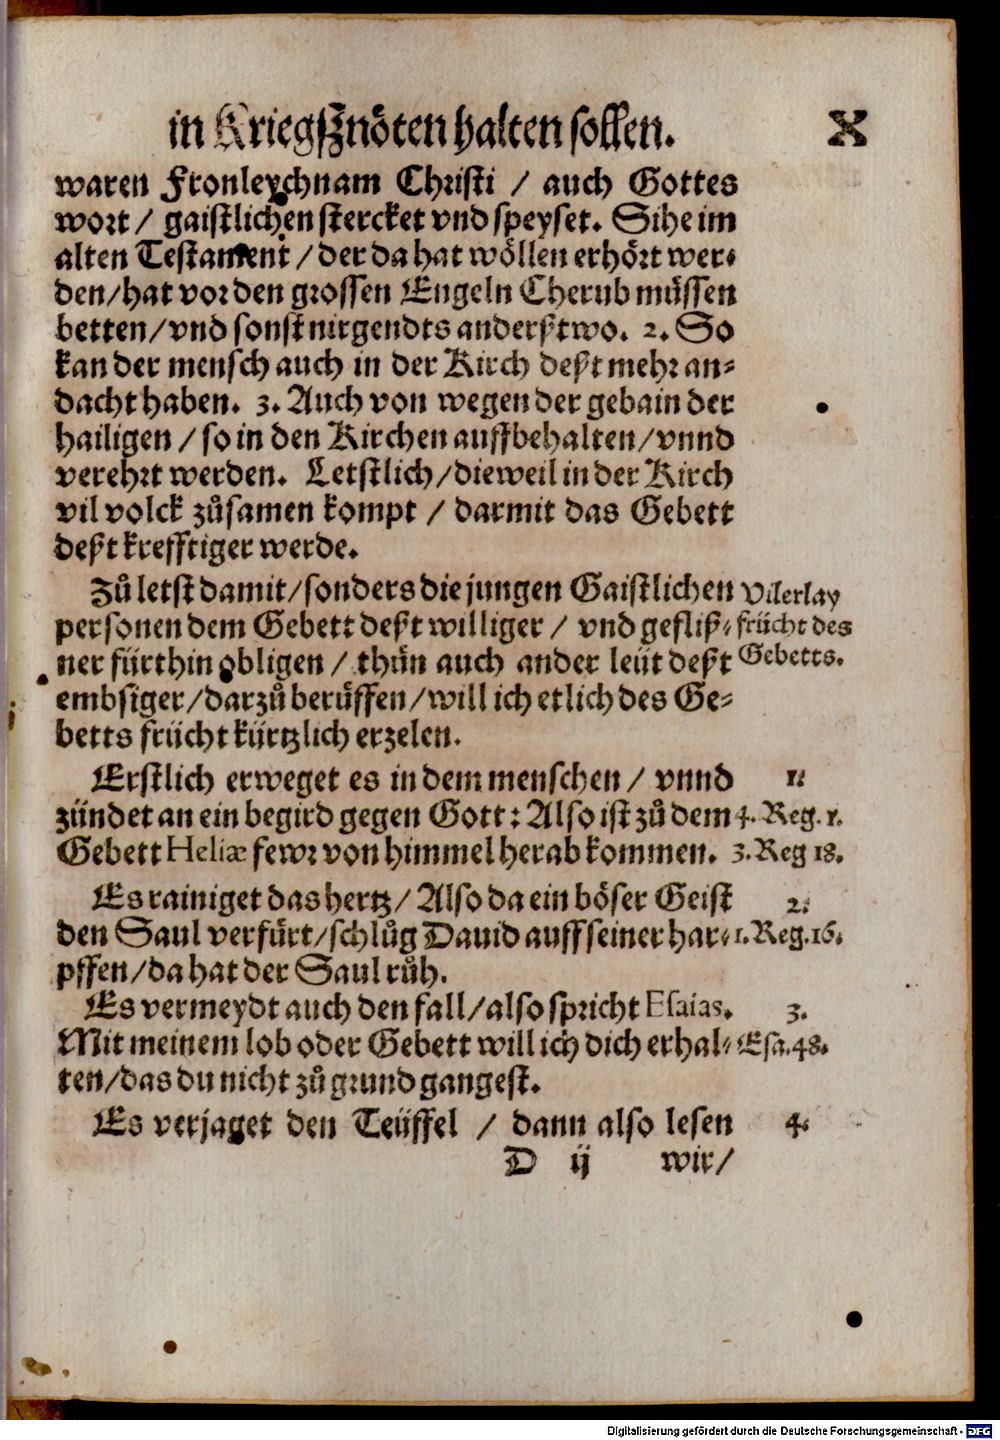 in Kriegsznöten halten sollen. X
waren Fronleychnam Christi / auch Gottes
wort / gaistlichen stercket vnd speyset. Sihe im
alten Testament / der da hat wöllen erhört wer-
den / hat vor den grossen Engeln Cherub müssen
betten / vnd sonst nirgendts anderßtwo. 2. So
kan der mensch auch in der Kirch deßt mehr an-
dacht haben. 3. Auch von wegen der gebain der
hailigen / so in den Kirchen auffbehalten / vnnd
verehrt werden. Letstlich / dieweil in der Kirch
vil volck zůsamen kompt / darmit das Gebett
deßt krefftiger werde.
Zů letst damit / sonders die jungen Gaistlichen
personen dem Gebett deßt williger / vnd gefliß-
ner fürthin obligen / thůn auch ander leüt deßt
embsiger / darzů berůffen / will ich etlich des Ge-
betts frücht kürtzlich erzelen.
Vilerlay
frücht des
Gebetts.
Erstlich erweget es in dem menschen / vnnd
zündet an ein begird gegen Gott: Also ist zů dem
Gebett Heliæ fewr von himmel herab kommen.
1.
4. Reg. 1.
3. Reg 18.
Es rainiget das hertz / Also da ein böser Geist
den Saul verfürt / schlůg Dauid auff seiner har-
pffen / da hat der Saul růh.
2.
1. Reg. 16.
Es vermeydt auch den fall / also spricht Esaias.
Mit meinem lob oder Gebett will ich dich erhal-
ten / das du nicht zů grund gangest.
3.
Esa. 48.
Es verjaget den Teüffel / dann also lesen
4.
D ij wir /
Digitalisierung gefördert durch die Deutsche Forschungsgemeinschaft - DFG